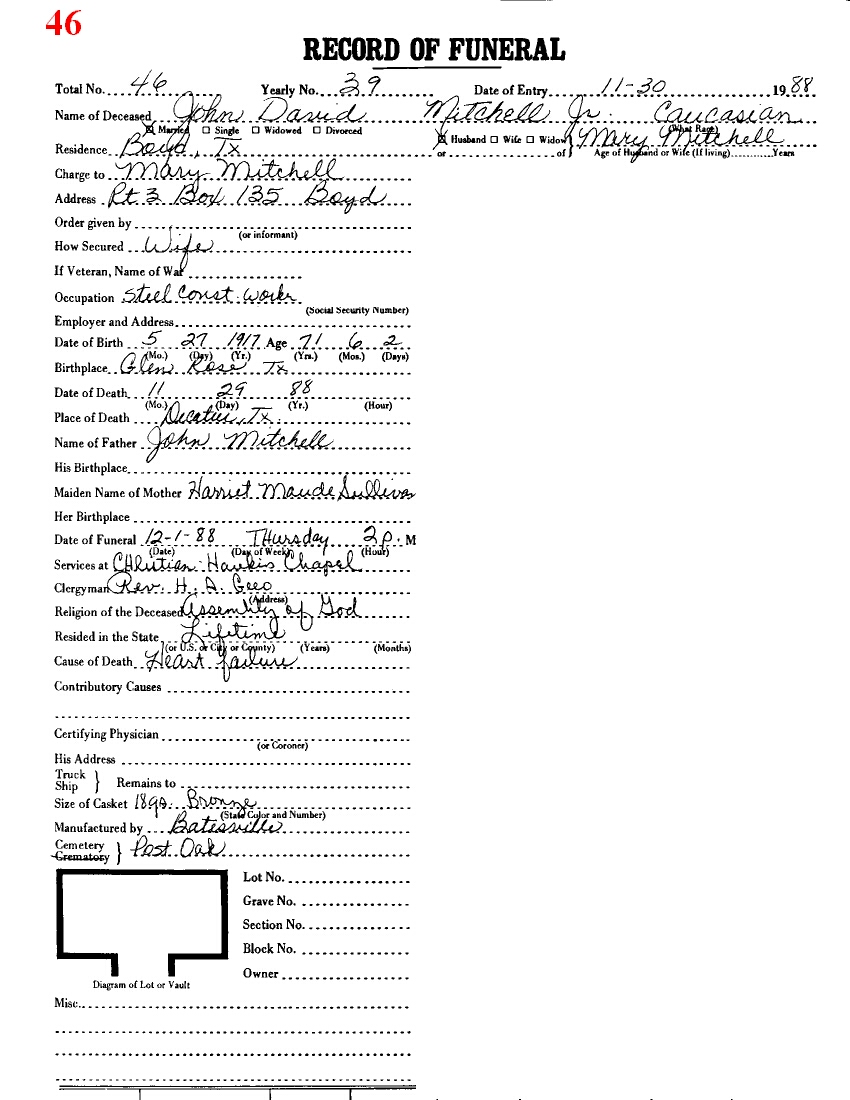 46
RECORD OF FUNERAL
Total No. 46 Yearly No. 39 Date of Entry 11-30 1988
Name of Deceased John David Mitchell Jr. Caucasian
(What Race)
☒ Married ☐ Single ☐ Widowed ☐ Divorced ☒ Husband ☐ Wife ☐ Widow Mary Mitchell
Residence Boyd, Tx or of Age of Husband or Wife (If living) Years
Charge to Mary Mitchell
Address Rt 3 Box 135 Boyd
Order given by
(or informant)
How Secured Wife
If Veteran, Name of War
Occupation Steel Const. Worker
(Social Security Number)
Employer and Address
Date of Birth 5 27 1917 Age 71 6 2
(Mo.) (Day) (Yr.) (Yrs.) (Mos.) (Days)
Birthplace Glen Rose Tx
Date of Death 11 29 88
(Mo.) (Day) (Yr.) (Hour)
Place of Death Decatur, Tx.
Name of Father John Mitchell
His Birthplace
Maiden Name of Mother Harriet Maude Sullivan
Her Birthplace
Date of Funeral 12-1-88 Thursday 2 P. M
(Date) (Day of Week) (Hour)
Services at Christian-Hawkins Chapel
Clergyman Rev. H. A.
(Address)
Religion of the Deceased Assembly of God
Resided in the State Lifetime
(or U.S. or City or County) (Years) (Months)
Cause of Death Heart failure
Contributory Causes
Certifying Physician
(or Coroner)
His Address
Truck
Ship } Remains to
Size of Casket 18ga. Bronze
(State Color and Number)
Manufactured by Batesville
Cemetery
Crematory } Post Oak
Lot No.
Grave No.
Section No.
Block No.
Owner
Diagram of Lot or Vault
Misc.